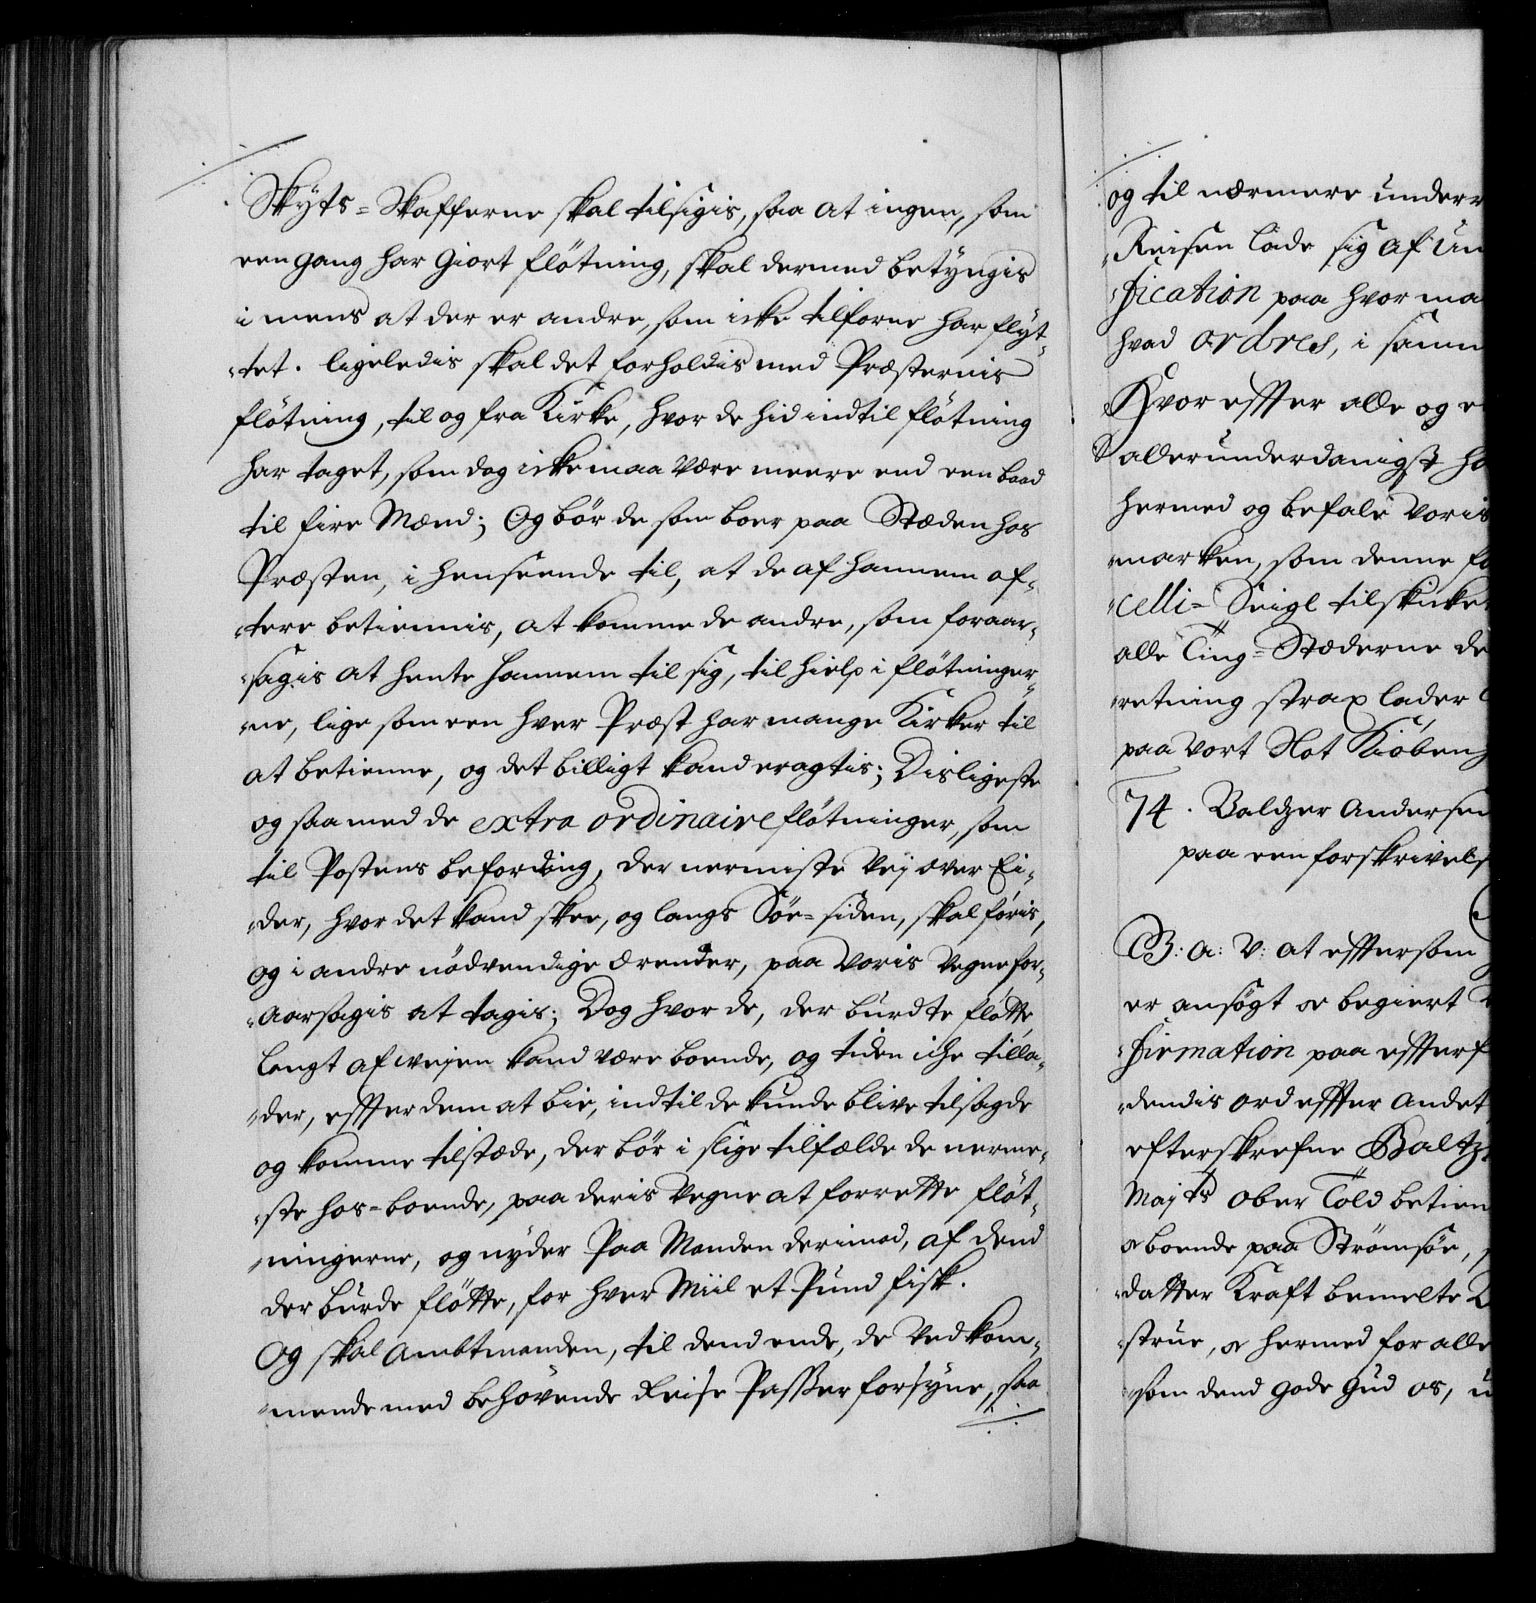 Skyts-Skafferne skal tilsigis, saa at ingen, som
een gang har giort fløtning, skal dermed betyngis
imens at der er andre, som icke tilforne har fløt-
tet. ligeledis skal det forholdis med Præsternis
fløtning, til og fra Kirke, hvor de hid indtil fløtning
har taget, som dog icke maa være meere end een baad
til fire Mænd; Og bør de som boer paa Stæden hos
Præsten, i henseende til, at de af hannem of-
tere betiennis, at komme de andre, som foraar-
sagis at hente hannem til sig, til hielp i fløtninger-
ne, lige som een hver Præst har mange Kirker til
at betienne, og det billigt kand eragtis; Disligeste
og saa med de extra ordinaire fløtninger, som
til Postens befording, der nermiste Vej over Ei-
der, hvor det kand skee, og langs Søe-siden, skal føris,
og i andre nødvendige ærender, paa Voris Vegne for-
aarsagis at tagis; Dog hvor de, der burdte fløtte,
langt af vejen kand være boende, og tiden iche tilla-
der, effter dem at bie, indtil de kunde blive tilsagde
og komme tilstæde, der bør i slige tilfælde de nerme-
ste hos-boende, paa deris Vegne at forrette fløt-
ningerne, og nyder Paa Manden derimod, af dend
der burde fløtte, for hver Miil et Pund fisk.
Og skal Ambtmanden, til dend ende, de Vedkom-
mende med behøvende Reise Passer forsyne, saa
og til nærmere underr
Reisen lade sig af un
fication paa hvor ma
hvad ordres, i samm
Hvor effter alle og e
allerunderdanigst ha
hermed og befale Voris
marken, som denne fo
celli-Seigl tilskicke
alle Ting-Stæderne de
retning strax lader
paa Vort Slot Kiøben
74. Baltzer Andersen
paa een forskrivels
G: A: V: at effter som
er ansøgt og begiert
firmation paa effterf
dendis ord effter Andet
efterskrefne Baltz
Majts Ober Told betien
boende paa Strømsøe,
datter Kraft bemelte
strue, og hermed for alle
som dend gode Gud os,